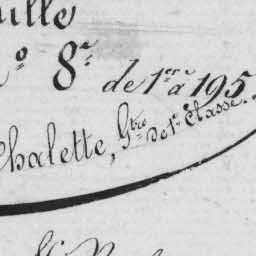 ille
o 8e de 1er à 195
Chalette, Gtre de 1re Classe.